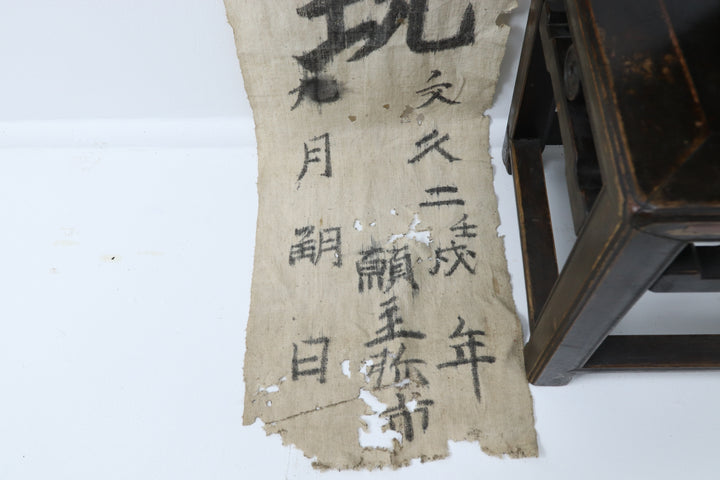 現
文久二壬戌年
願主弥市
九月朔日